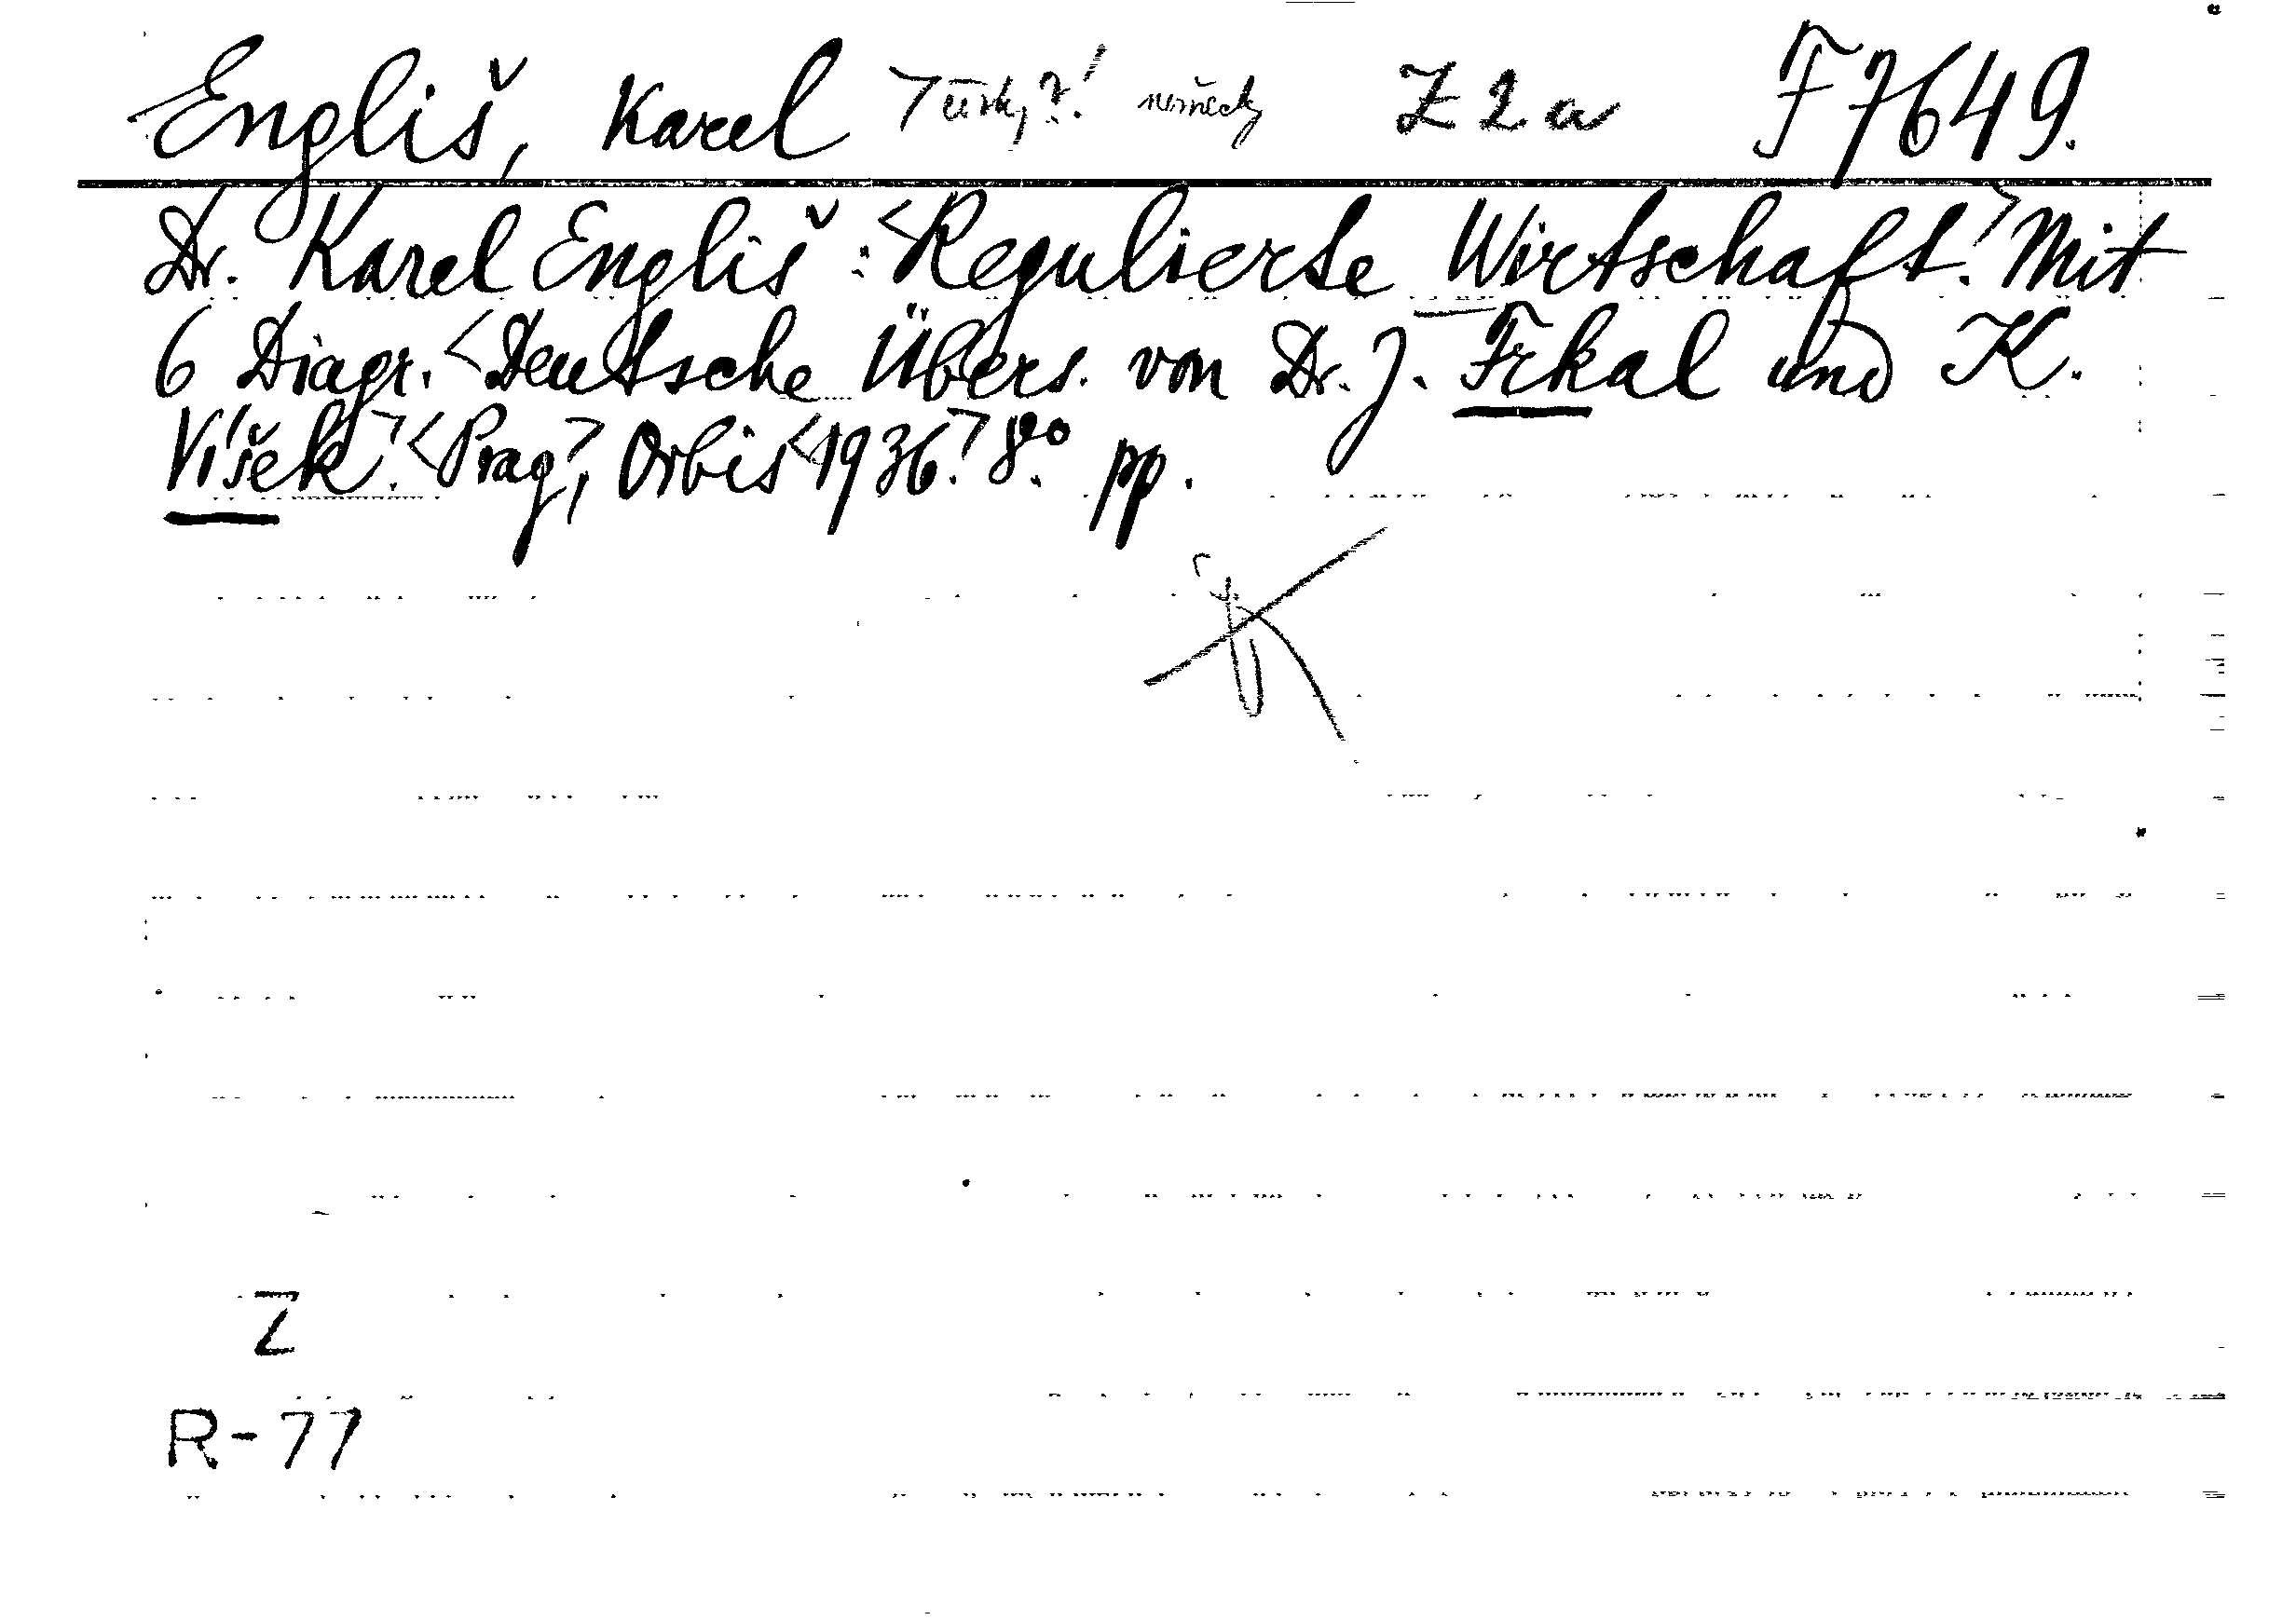 Engliš, Karel česky?! německy Z 2 a F 7649.
Dr. Karel Engliš: <Regulierte Wirtschaft.> Mit
6 Diagr. <Deutsche Übers. von Dr. J. Frkal und K.
Víšek.> <Prag>, Orbis <1936.> 8º. pp.
Z
R-77